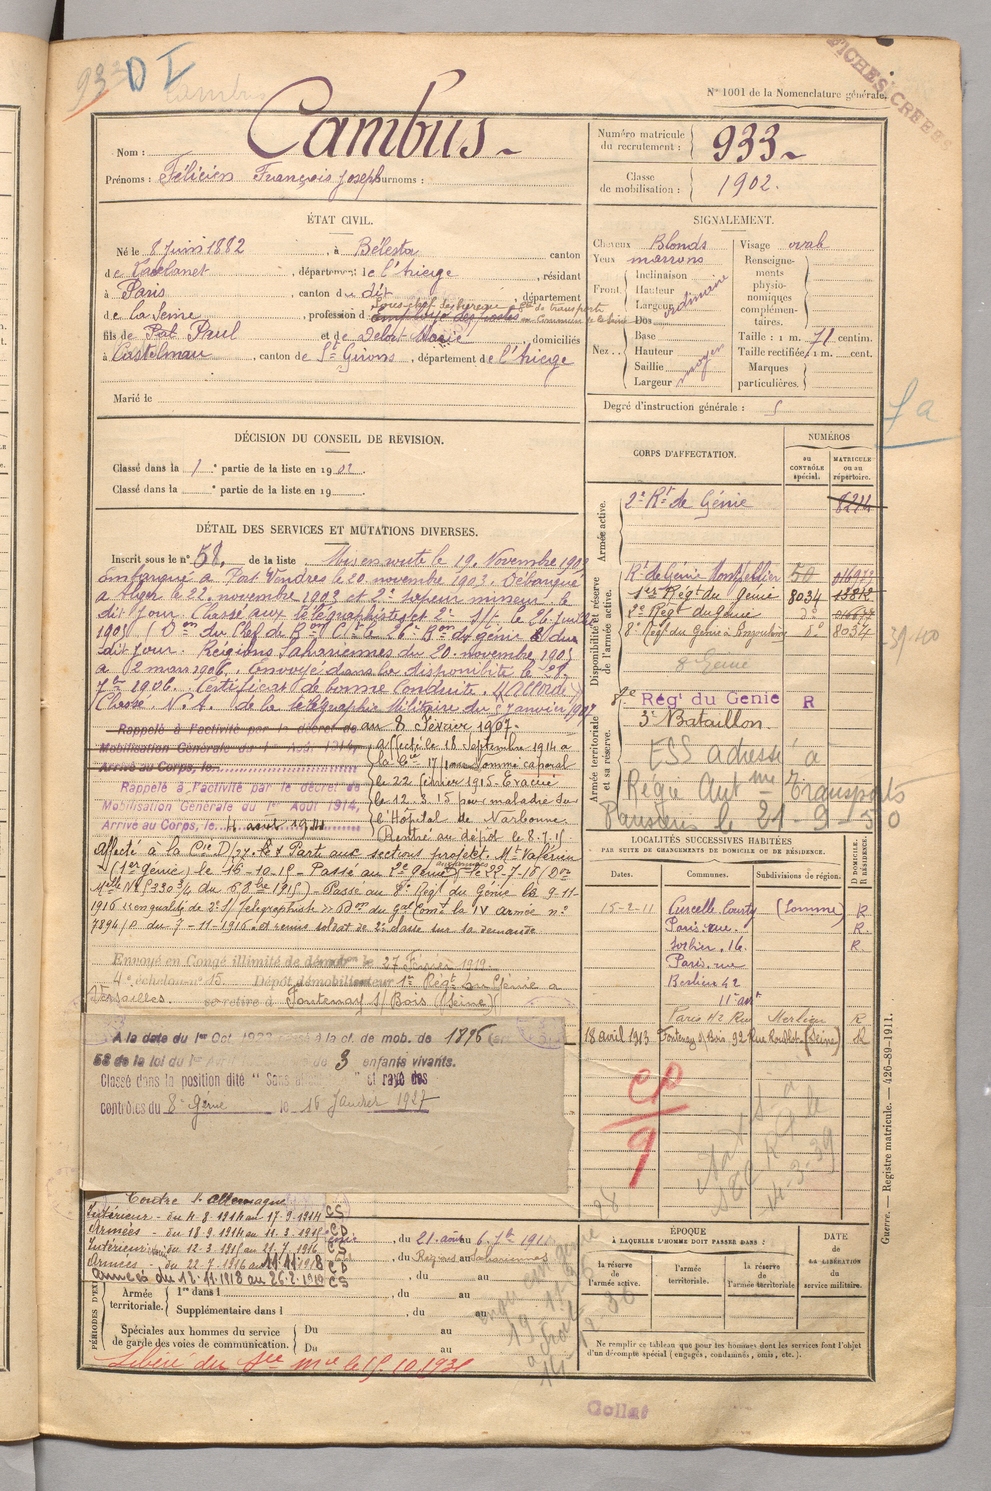 933 D I
N° 1001 de la Nomenclature générale.
FICHES CREEES
Nom : Cambus
Prénoms : Félicien François Joseph surnoms :
Numéro matricule du recrutement : 933
Classe de mobilisation : 1902.
ÉTAT CIVIL.
Né le 8 Juin 1882, à Bélesta canton
de Lavelanet, département de l'Ariège, résidant
à Paris, canton du dit, département
de la Seine, profession d Employé des postes
fils de Pat Paul et de Delort Marie domiciliés
à Castelnau, canton de St Girons, département de l'Ariège
Marié le
SIGNALEMENT.
Cheveux Blonds
Yeux marrons
Front Inclinaison Hauteur Largeur ordinaire
Nez Dos Base Hauteur Saillie Largeur moyen
Visage ovale
Renseignements physionomiques complémentaires.
Taille : 1 m. 71 centim.
Taille rectifiée : 1 m. cent.
Marques particulières.
Degré d'instruction générale : 5
fa
DÉCISION DU CONSEIL DE REVISION.
Classé dans la 1re partie de la liste en 1903.
Classé dans la partie de la liste en 19
DÉTAIL DES SERVICES ET MUTATIONS DIVERSES.
Inscrit sous le n° 58, de la liste Mis en route le 19 Novembre 1903
Embarqué à Port Vendres le 20 novembre 1903. Débarqué
à Alger le 22 novembre 1903 et 2e Sapeur mineur le
dit jour. Classé aux télégraphistes et 2e le 26 Juillet
1905 du Chef de Bon Ct le 26e Bon du génie du
dit jour. Régions Sahariennes du 20 novembre 1905
à 12 mars 1906. Envoyé dans la disponibilité le
7bre 1906. Certificat de bonne Conduite "Accordé"
Classé N.A. de la télégraphie Militaire du 5 janvier 1907
au 8 Février 1907.
Rappelé à l'activité par le décret de
Mobilisation Générale du 1er Août 1914,
Arrivé au Corps, le
Rappelé à l'activité par le décret de
Mobilisation Générale du 1er Août 1914,
Arrivé au Corps, le 4 août 1914
affecté le 18 Septembre 1914 à
la Cie 17/1 nommé caporal
le 22 février 1915 Evacué
le 12.3.15 pour maladie sur
l'Hôpital de Narbonne
Rentré au dépôt le 8.7.15
Affecté à la Cie D/27. Parti aux sections projet. Mt Valérien
(1er génie) le 16-10-15 - Passé au 2e génie le 22-7-16
1915) - Passé au 8e Régt du Génie le 9-11-
1916 en qualité de 2e S/ télégraphiste du gal Comt la IV armée n°
7894/D du 7-11-1916 et remis soldat de 2e classe sur sa demande
Envoyé en Congé illimité de démobon le 27 Février 1919.
4e échelon n° 15. Dépôt démobilisateur 1er Régt du Génie à
Versailles. se retire à Fontenay s/ Bois (Seine)
À la date du 1er Oct. 1922 passé à la cl. de mob. de 1896 (art
58 de la loi du 1er Avril de 3 enfants vivants.
Classé dans la position dite "Sans et rayé des
contrôles du 8e Génie le 16 Janvier 1927
Contre l'Allemagne
Intérieur - du 4-8-1914 au 17-9-1914 CS
Armées - du 18-9-1914 au 11-3-1915 CD
Intérieur - du 12-3-1915 au 21-7-1916 CS
Armées - du 22-7-1916 au 11.11.1918 CD
Armées du 12.11.1918 au 26.2.1919 CS
, du 21 août au 6-7bre 191
, du Régions au Sahariennes
, du au
PÉRIODES D'EX
Armée territoriale. 1re dans l , du au
Supplémentaire dans l , du au
Spéciales aux hommes du service de garde des voies de communication. Du au
Du au
Libéré du Sce Mre le 15.10.1931
CORPS D'AFFECTATION.
NUMÉROS
au CONTRÔLE spécial.
MATRICULE ou au répertoire.
Armée active.
2e Rt de Génie 8214
Disponibilité et réserve de l'armée active.
Rt de Génie Montpellier 50 016977
1er Régt du génie 8034
2e Régt du génie do
8e Régt du Génie à do 8034
8e Génie
Armée territoriale et sa réserve.
8e Régt du Genie R
3e Bataillon
ESS adressé à
Régie Aut me Transports
Parisiens le 21-9-30
LOCALITÉS SUCCESSIVES HABITÉES
PAR SUITE DE CHANGEMENTS DE DOMICILE OU DE RÉSIDENCE.
Dates. Communes. Subdivisions de région. D DOMICILE. R RÉSIDENCE.
15-2-11 Curcelle Courty (Somme) R
Paris rue R.
Sorbier, 16. R
Paris. rue
Berlier 42
11e art
Paris 42 Rue R
18 avril 1913 Fontenay s/ Bois. 92 Rue (Seine) R
CP
9
ÉPOQUE
À LAQUELLE L'HOMME DOIT PASSER DANS :
la réserve de l'armée active.
l'armée territoriale.
la réserve de l'armée territoriale
DATE de LA LIBÉRATION du service militaire.
Ne remplir ce tableau que pour les hommes dont les services font l'objet
d'un décompte spécial (engagés, condamnés, omis, etc.).
Guerre. — Registre matricule. — 426-89-1911.
Collat